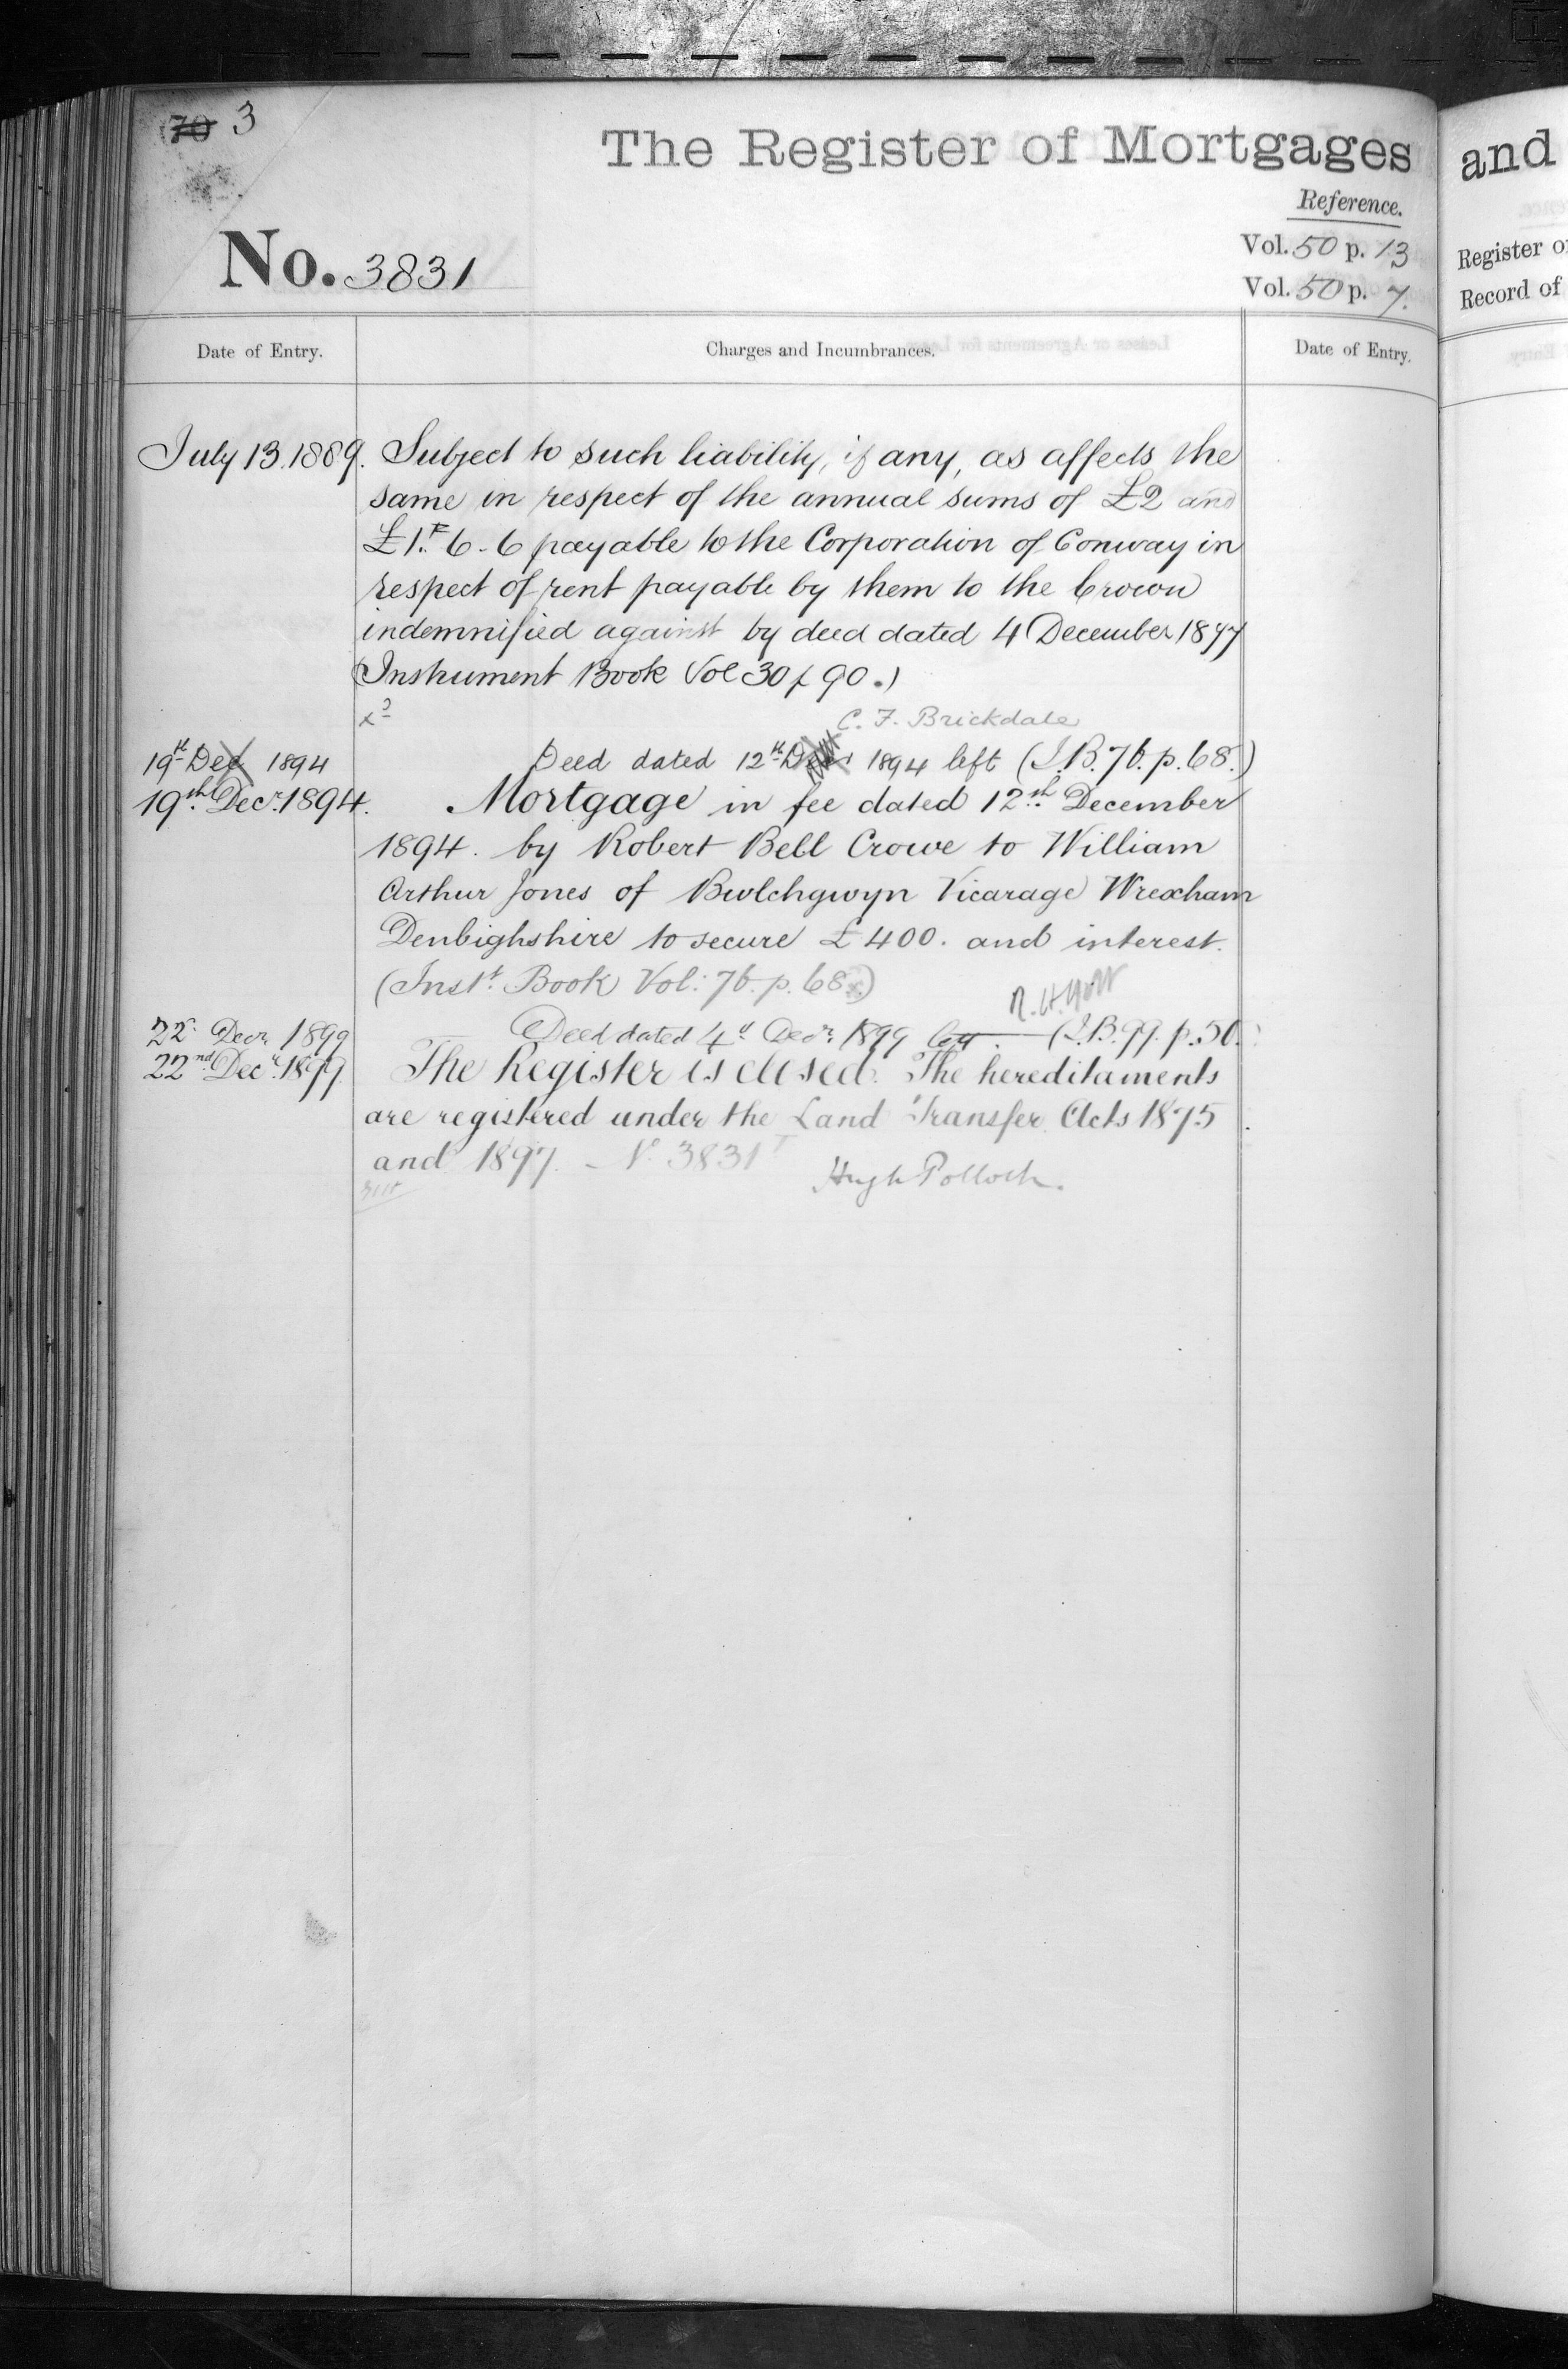 70 3
The Register of Mortgages
and
Reference.
No. 3831
Vol. 50 p. 13
Vol. 50 p. 7.
Register o
Record of
Date of Entry.
Charges and Incumbrances.
Date of Entry.
July 13. 1889. Subject to such liability, if any, as affects the
same in respect of the annual sums of £2 and
£1. 6-6 payable to the Corporation of Conway in
respect of rent payable by them to the Crown
indemnified against by deed dated 4 December 1877
(Instrument Book Vol 30 p 90.)
C. F. Brickdale
19th Dec 1894 Deed dated 12th Dec 1894 left (I.B. 76. p. 68.)
19th Decr. 1894. Mortgage in fee dated 12th December
1894. by Robert Bell Crowe to William
Arthur Jones of Bwlchgwyn Vicarage Wrexham
Denbighshire to secure £400. and interest.
(Inst. Book Vol: 76. p. 68.)
22d Decr 1899 Deed dated 4th Decr. 1899 left (I.B. 99. p. 50.
22nd Decr. 1899 The Register is closed. The hereditaments
are registered under the Land Transfer Acts 1875
and 1897. No. 3831
Hugh Pollock.